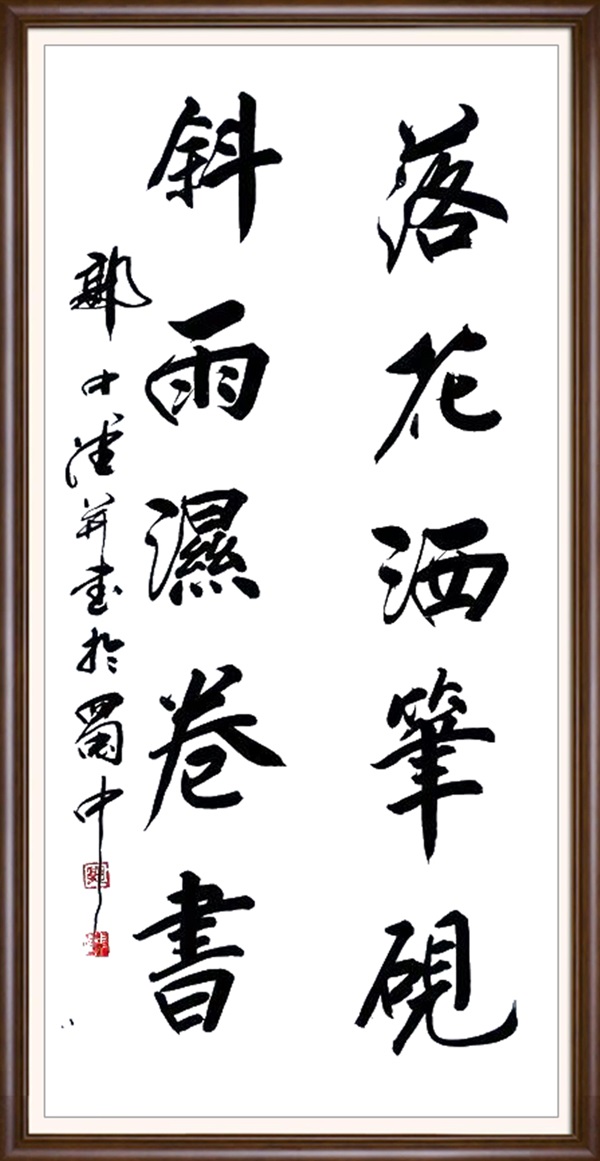 落花洒筆硯
斜雨濕卷書
郭才并書於蜀中